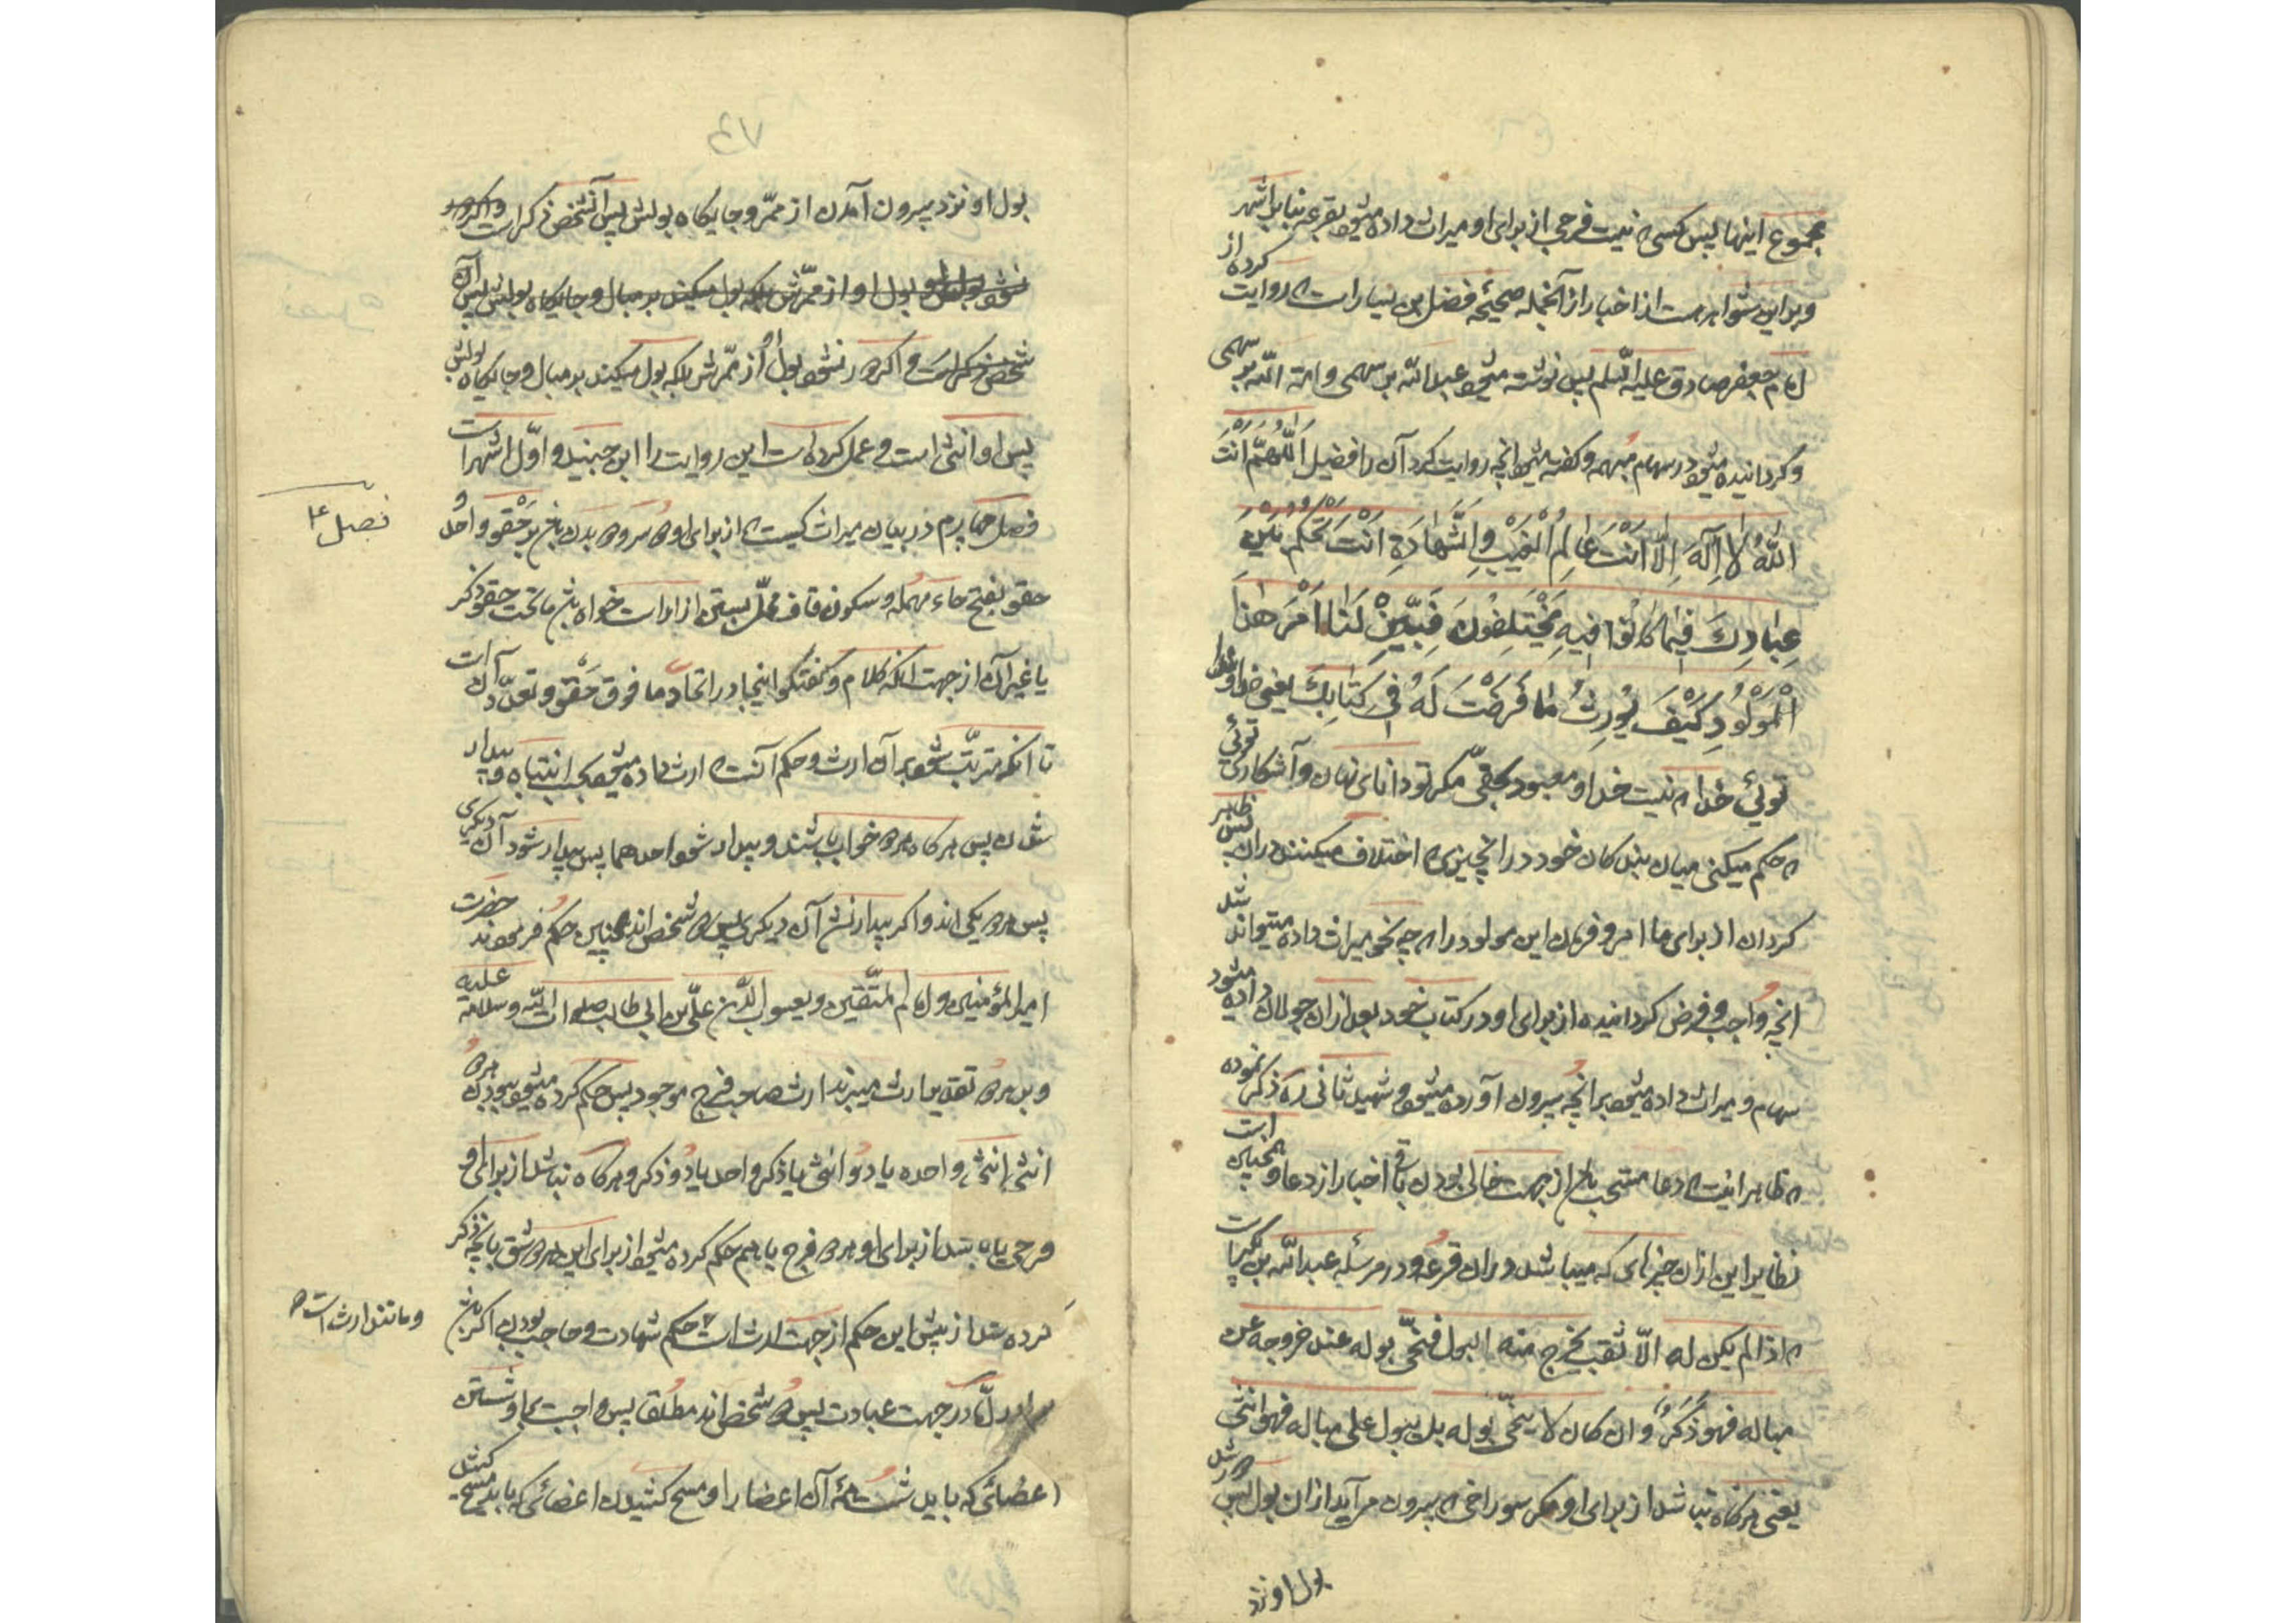 مجموع اینها پس کسی که نیست فرجی از برای او میراث داده میشود بقرعه بنا بر اشهر
و بر این شواهد هست از اخبار از آنجمله صحیحه فضل بن یسار است که روایت کرده از
امام جعفر صادق علیه السلم پس نوشته میشود عبد الله بر سهمی و امة الله بر سهمی
و گردانیده میشود در سهام مبهمه و گفته میشود آنچه روایت کرد آن را فضیل اَللّهُمَّ اَنْتَ
اللّٰهُ لا اِلٰهَ اِلّا اَنْتَ عالِمُ الْغَیْبِ وَ الشَّهادَةِ اَنْتَ تَحْکُمُ بَیْنَ
عِبادِكَ فیما کانُوا فیهِ یَخْتَلِفُونَ فَبَیِّنْ لَنا اَمْرَ هٰذَا
الْمَوْلُودِ کَیْفَ یُوْرَثُ ما فَرَضْتَ لَهُ فی کِتابِكَ یعنی خداوندا
توئی خدا که نیست خدا و معبود بحقی مگر تو دانای نهان و آشکاری توئی
که حکم میکنی میان بندکان خود در آنچیزی که اختلاف میکنند در آن پس ظاهر
کردان از برای ما امر و فرمان این مولود را که بچه نحو میراث داده میتواند شد
آنچه واجب و فرض کردانیده از برای او در کتاب خود بعد از آن جولان داده میشود
سهام و میراث داده میشود بر آنچه بیرون آورده میشود و شهید ثانی ره ذکر نموده
که ظاهر اینست که دعا مستحب باشد از جهت خالی بودن باقی اخبار از دعا و همچنین است
نظایر این از آن چیزهائی که میباشد در آن قرعه و در مرسله عبد الله بن بکیر است
که اذا لم یکن له الّا ثقب یخرج منه البول فنحّی بوله عند خروجه عن
مباله فهو ذَکَرٌ وان کان لا ینحّی بوله بل یبول علی مباله فهو انثی
یعنی هرکاه نباشد از برای او مگر سوراخی که بیرون می‌آید از آن بول پس دور شد
بول او نزد
٧٦
بول او نزد بیرون آمدن از ممرّ و جایکاه بولش پس آنشخص ذکر است
نشود بول او از ممرّش بلکه بول میکند بر مبال و جایکاه بولش پس آن
شخص ذکر است و اگر دور نشود بول او از ممّرش بلکه بول میکند بر مبال و جایکاه بولش
پس او انثی است و عمل کرده است این روایت را ابن جنید و اوّل اشهر است
فصل ٤
فصل چهارم در بیان میراث کسیست که از برای او دو سر و دو بدن باشد بر حقو واحد
حقو بفتح حاء مهمله و سکون قاف محلّ بستن ازار است خواه باشد ما تحت حقو ذکر
یا غیر آن از جهت آنکه کلام و کفتکو اینجا در اتحاد ما فوق حَقْو و تعدّد آن است
تا آنکه مترتّب شود بر آن ارث و حکم آنست که ارث داده میشود بحسب انتباه و بیدار
شدن پس هرکاه هر دو خواب باشند و بیدار شود احدهما پس بیدار شود آن دیگری
پس هر دو یکی اند و اکر بیدار نشد آن دیکری پس دو شخص اند همچنین حکم فرمودند حضرت
امیر المؤمنین و امام المتّقین و یعسوب الدّین علی بن ابی طالب صلوات اللّه وسلامه علیه
و بر هر دو تقدیر ارث میبرند ارث صاحب فرج موجود پس حکم کرده میشود ببودن هر دو
انثی واحده یا دو انثی یا ذکر واحد یا دو ذکر و هرکاه نباشد از برای او
فرجی یا باشد از برای او هر دو فرج با هم حکم کرده میشود از برای این هر دو شق بآنچه ذکر
کرده شد از پیش این حکم از جهت ارث است حکم شهادت و حاجب بودن اکر باشد
و مانند ارث است
در جهت عبادت پس دو شخص اند مطلقا پس واجبست بر او شستن
اعضائی که باید شست همه آن اعضا را و مسح کشیدن اعضائی که باید مسح کشد